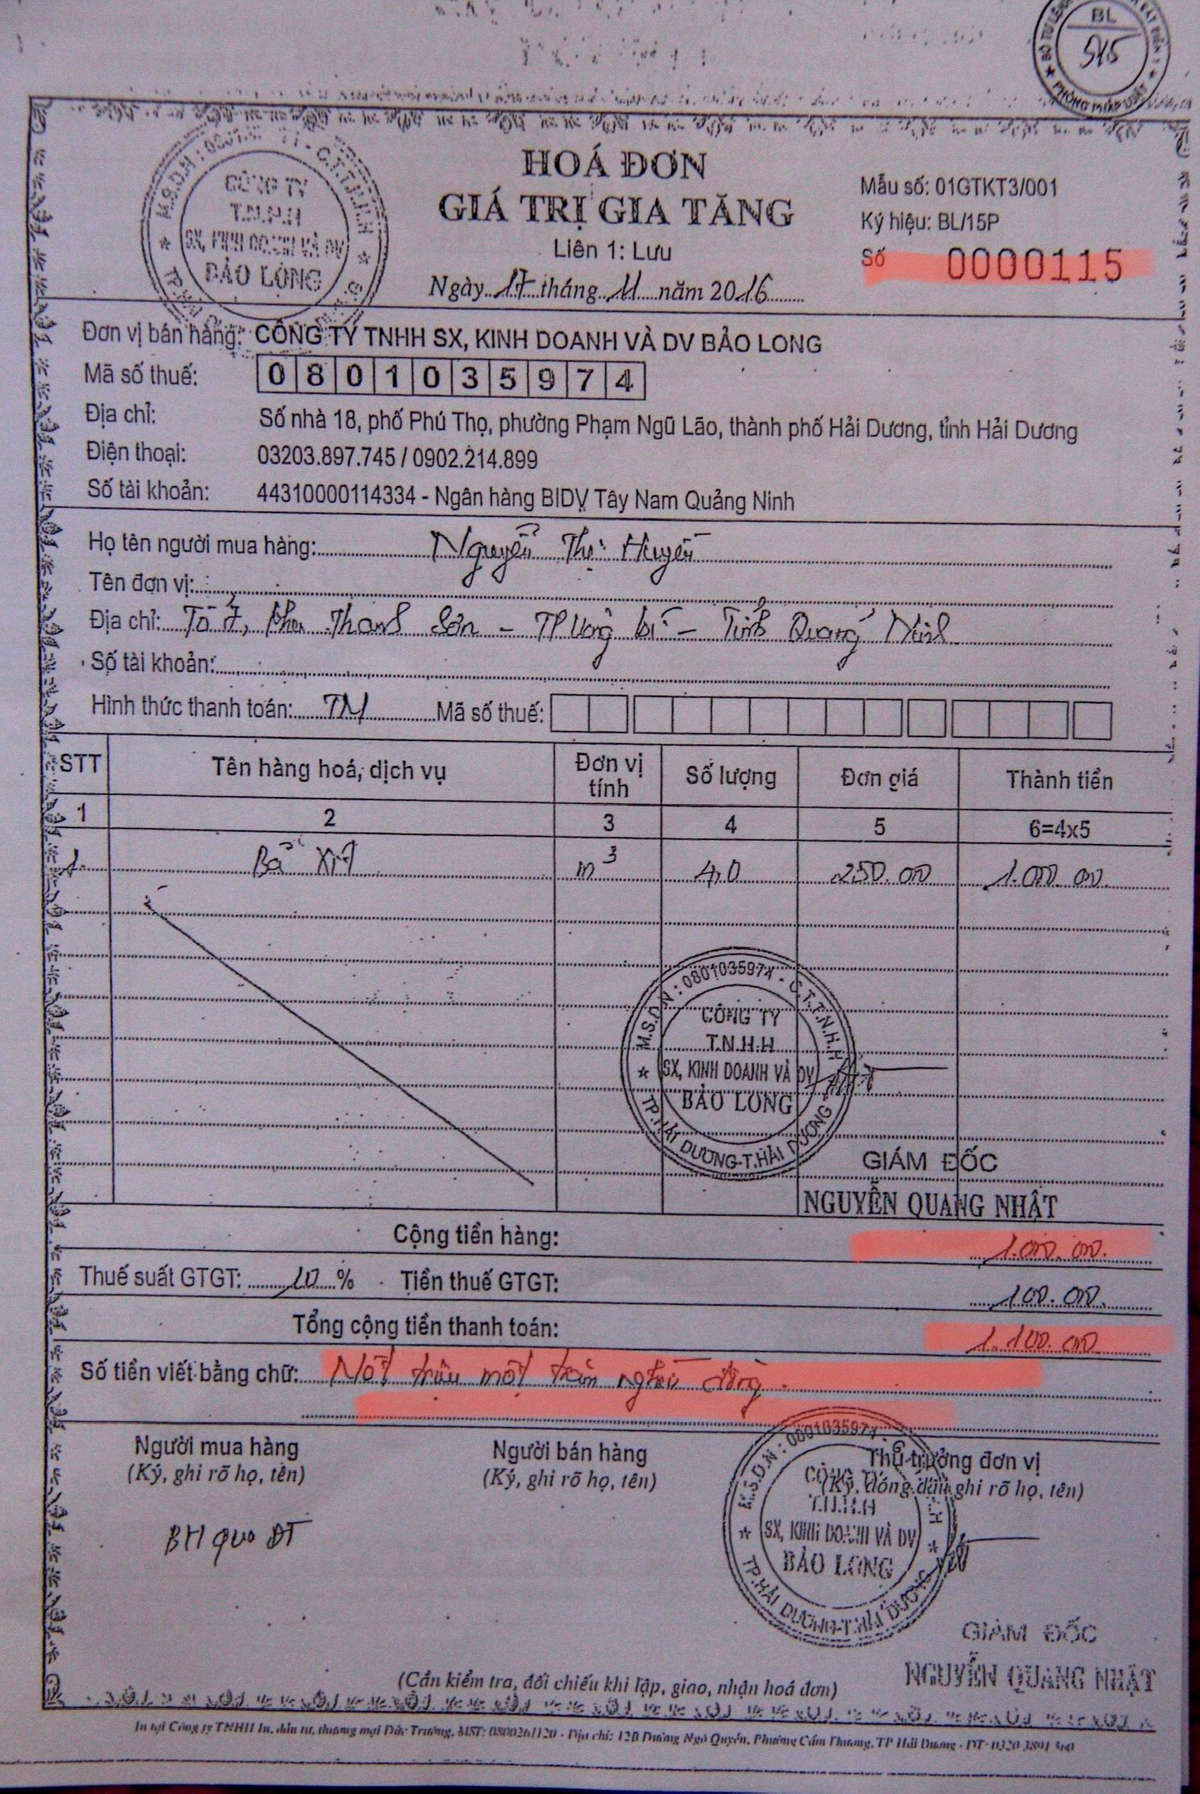 BL
515
PHÒNG PHÁP LUẬT
HOÁ ĐƠN
GIÁ TRỊ GIA TĂNG
Liên 1: Lưu
Ngày 17 tháng 11 năm 2016
Mẫu số: 01GTKT3/001
Ký hiệu: BL/15P
Số 0000115
CÔNG TY
T.N.H.H
SX, KINH DOANH VÀ DV
BẢO LONG
Đơn vị bán hàng: CÔNG TY TNHH SX, KINH DOANH VÀ DV BẢO LONG
Mã số thuế: 0801035974
Địa chỉ: Số nhà 18, phố Phú Thọ, phường Phạm Ngũ Lão, thành phố Hải Dương, tỉnh Hải Dương
Điện thoại: 03203.897.745 / 0902.214.899
Số tài khoản: 44310000114334 - Ngân hàng BIDV Tây Nam Quảng Ninh
Họ tên người mua hàng: Nguyễn Thị Huyền
Tên đơn vị:
Địa chỉ: Tổ 7, Khu Thanh Sơn - TP Uông Bí - Tỉnh Quảng Ninh
Số tài khoản:
Hình thức thanh toán: TM Mã số thuế:
STT Tên hàng hoá, dịch vụ Đơn vị tính Số lượng Đơn giá Thành tiền
1 2 3 4 5 6=4x5
1. Bã xít m3 4,0 250.000 1.000.000
M.S.D.N: 0801035974 - C.T.T.N.H.H
CÔNG TY
T.N.H.H
SX, KINH DOANH VÀ DV
BẢO LONG
TP.HẢI DƯƠNG-T.HẢI DƯƠNG
GIÁM ĐỐC
NGUYỄN QUANG NHẬT
Cộng tiền hàng: 1.000.000
Thuế suất GTGT: 10 % Tiền thuế GTGT: 100.000
Tổng cộng tiền thanh toán: 1.100.000
Số tiền viết bằng chữ: Một triệu một trăm nghìn đồng.
Người mua hàng Người bán hàng Thủ trưởng đơn vị
(Ký, ghi rõ họ, tên) (Ký, ghi rõ họ, tên) (Ký, đóng dấu ghi rõ họ, tên)
BH qua ĐT
M.S.D.N: 0801035974
CÔNG TY
T.N.H.H
SX, KINH DOANH VÀ DV
BẢO LONG
TP.HẢI DƯƠNG-T.HẢI DƯƠNG
GIÁM ĐỐC
NGUYỄN QUANG NHẬT
(Cần kiểm tra, đối chiếu khi lập, giao, nhận hoá đơn)
In tại Công ty TNHH In, đầu tư, thương mại Đức Trường, MST: 0800261120 - Địa chỉ: 12B Đường Ngô Quyền, Phường Cẩm Thượng, TP Hải Dương - ĐT: 0320 3891 360